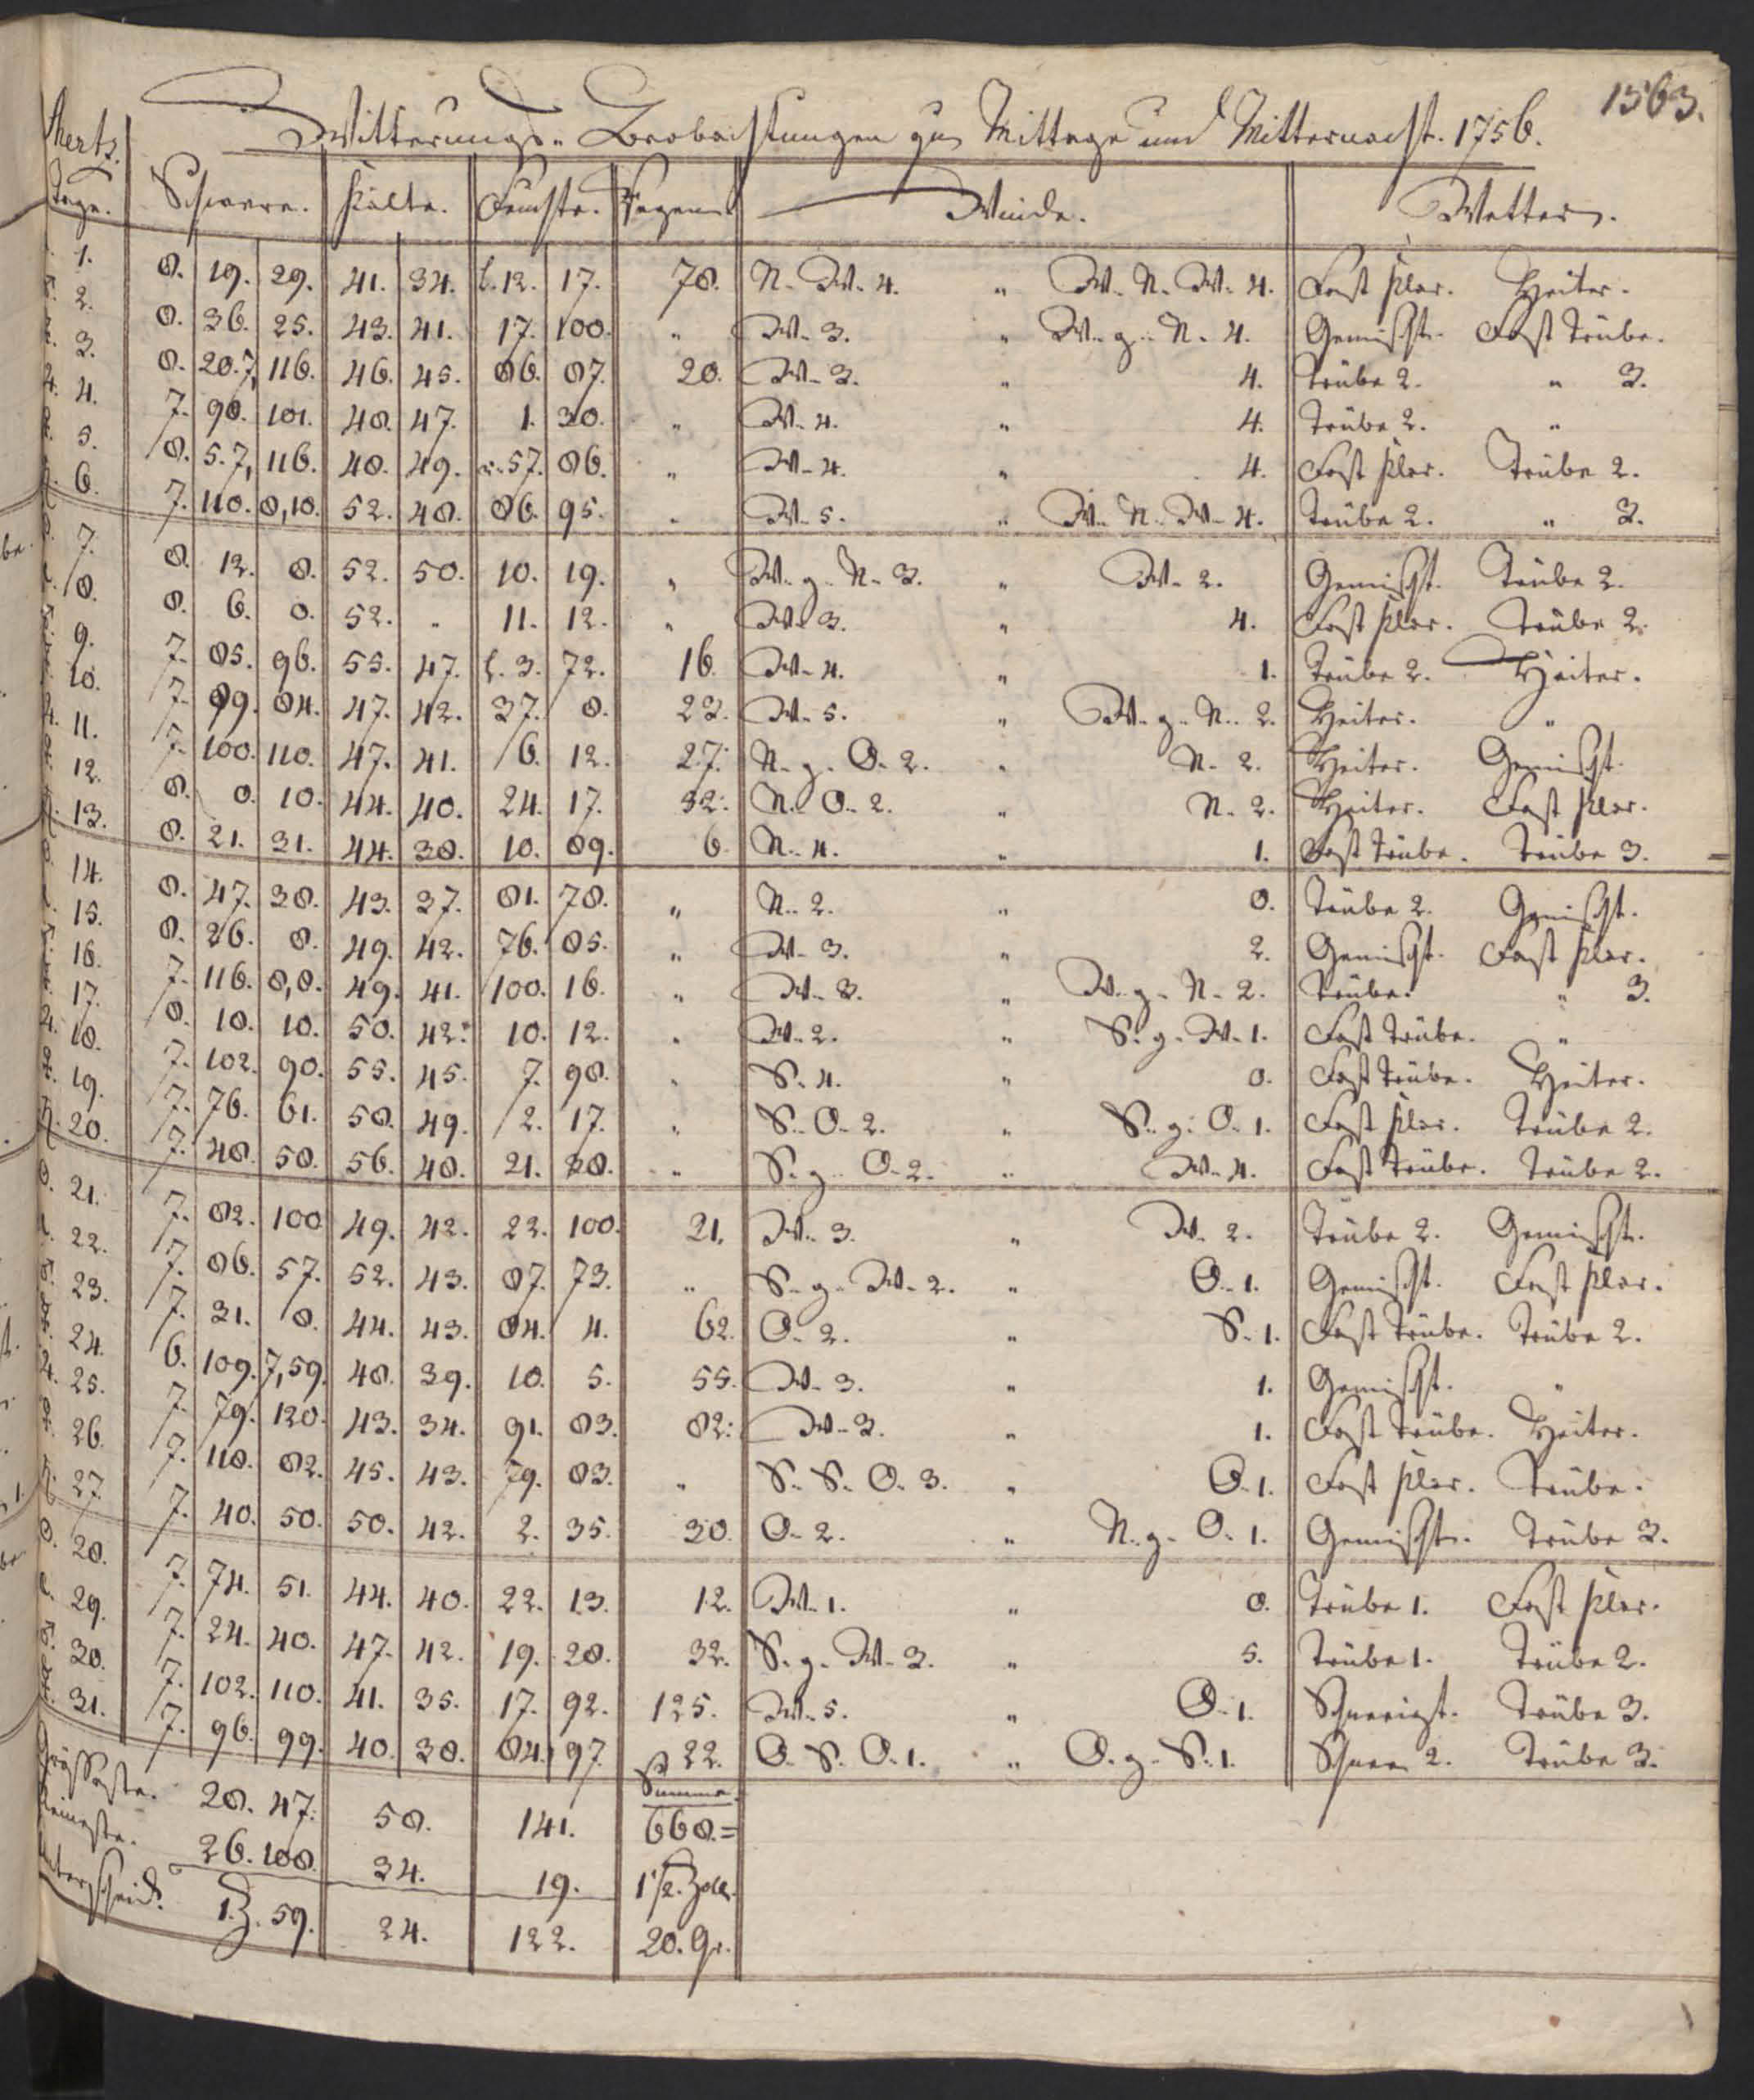 1563.
Witterungs-Beobachtungen zu Mittage und Mitternacht. 1756.
Mertz.
Tage. Schwere. Kälte. Feuchte. Regen. Winde. Wetter.
1. 8. 19. 29. 41. 34. f. 12. 17. 78. N. W. 4. " W. N. W. 4. Fast klar. Heiter.
2. 8. 36. 25. 43. 41. 17. 100. " W. 3. " W. g. N. 4. Gemischt. Fast trübe.
3. 8. 20. 7, 116. 46. 45. 86. 87. 20. W. 3. " 4. Trübe 2. " 3.
4. 7. 98. 101. 48. 47. 1. 30. " W. 4. " 4. Trübe 2. "
5. 8. 5. 7, 116. 48. 49. 57. 86. " W. 4. " 4. Fast klar. Trübe 2.
6. 7. 110. 8, 18. 52. 48. 86. 95. " W. 5. " W. N. W. 4. Trübe 2. " 3.
7. 8. 12. 8. 52. 50. 10. 19. " W. g. N. 3. " W. 2. Gemischt. Trübe 2.
8. 8. 6. 0. 52. " 11. 12. " W. 3. " 4. Fast klar. Trübe 2.
9. 7. 85. 96. 55. 47. f. 3. 72. 16. W. 4. " 1. Trübe 2. Heiter.
10. 7. 89. 84. 47. 42. 37. 8. 23. W. 5. " W. g. N. 2. Heiter. "
11. 7. 100. 110. 47. 41. 6. 12. 27. N. g. O. 2. " N. 2. Heiter. Gemischt.
12. 8. 0. 10. 44. 40. 24. 17. 32. N. O. 2. " N. 2. Heiter. Fast klar.
13. 8. 21. 31. 44. 38. 10. 89. 6. N. 4. " 1. Fast trübe. Trübe 3.
14. 8. 47. 38. 43. 37. 81. 78. " N. 2. " 0. Trübe 2. Gemischt.
15. 8. 26. 8. 49. 42. 76. 85. " W. 3. " 2. Gemischt. Fast klar.
16. 7. 116. 8, 8. 49. 41. 100. 16. " W. 3. " W. g. N. 2. Trübe. " 3.
17. 8. 18. 10. 50. 42. 10. 12. " W. 2. " S. g. W. 1. Fast trübe. "
18. 7. 102. 90. 55. 45. 7. 98. " S. 4. " 0. Fast trübe. Heiter.
19. 7. 76. 61. 58. 49. 2. 17. " S. O. 2. " S. g. O. 1. Fast klar. Trübe 2.
20. 7. 48. 58. 56. 48. 21. 28. " S. g. O. 2. " W. 4. Fast trübe. Trübe 2.
21. 7. 82. 100. 49. 42. 22. 100. 21. W. 3. " W. 2. Trübe 2. Gemischt.
22. 7. 86. 57. 52. 43. 87. 73. " S. g. W. 2. " O. 1. Gemischt. Fast klar.
23. 7. 31. 8. 44. 43. 84. 4. 62. O. 2. " S. 1. Fast trübe. Trübe 2.
24. 6. 109. 7, 59. 48. 39. 10. 5. 55. W. 3. " 1. Gemischt. "
25. 7. 79. 120. 43. 34. 91. 83. 82. W. 3. " 1. Fast trübe. Heiter.
26. 7. 118. 82. 45. 43. 79. 83. " S. S. O. 3. " O. 1. Fast klar. Trübe.
27. 7. 40. 50. 50. 42. 2. 35. 30. O. 2. " N. g. O. 1. Gemischt. Trübe 3.
28. 7. 74. 51. 44. 40. 22. 13. 12. W. 1. " 0. Trübe 1. Fast klar.
29. 7. 24. 40. 47. 42. 19. 28. 32. S. g. W. 3. " 5. Trübe 1. Trübe 2.
30. 7. 102. 110. 41. 35. 17. 92. 125. W. 5. " O. 1. Schneeigt. Trübe 3.
31. 7. 96. 99. 40. 38. 84. 97. 22. O. S. O. 1. " O. g. S. 1. Schnee 2. Trübe 3.
Summe.
Grösseste. 28. 47. 58. 141. 668. =
Kleineste. 26. 108. 34. 19. 1 1/2. Zoll.
Unterscheid. 1. Z. 59. 24. 122. 20. Gr.